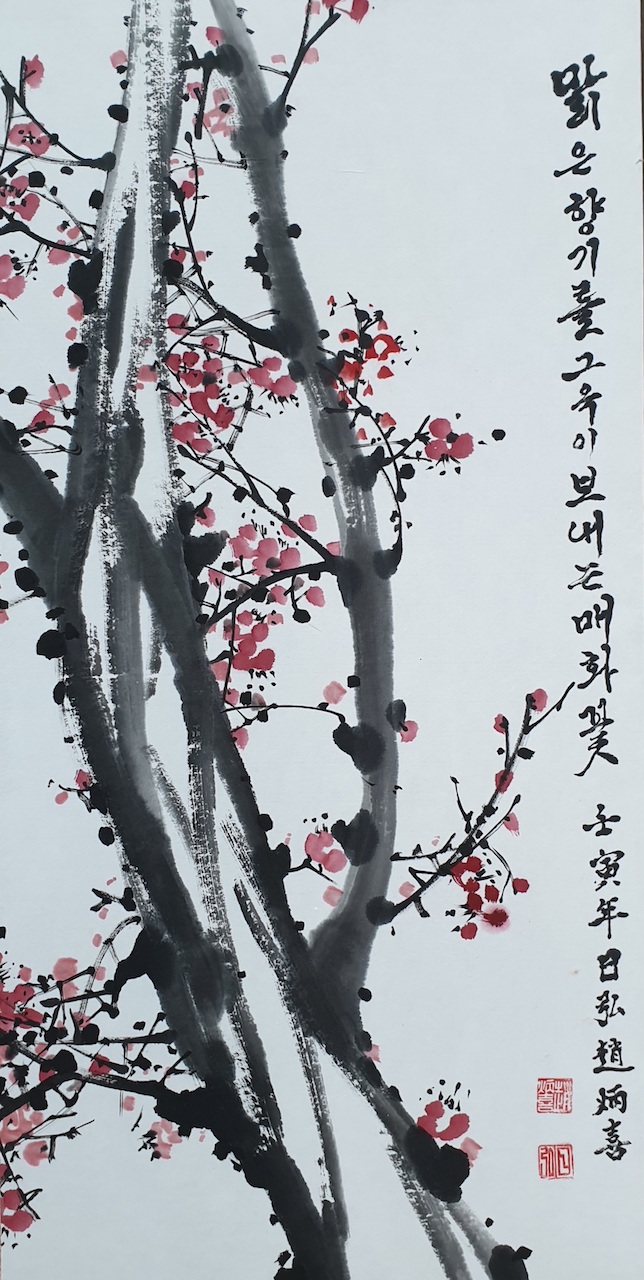 맑은향기를그윽이보내는매화꽃 壬寅年日弘趙炳喜